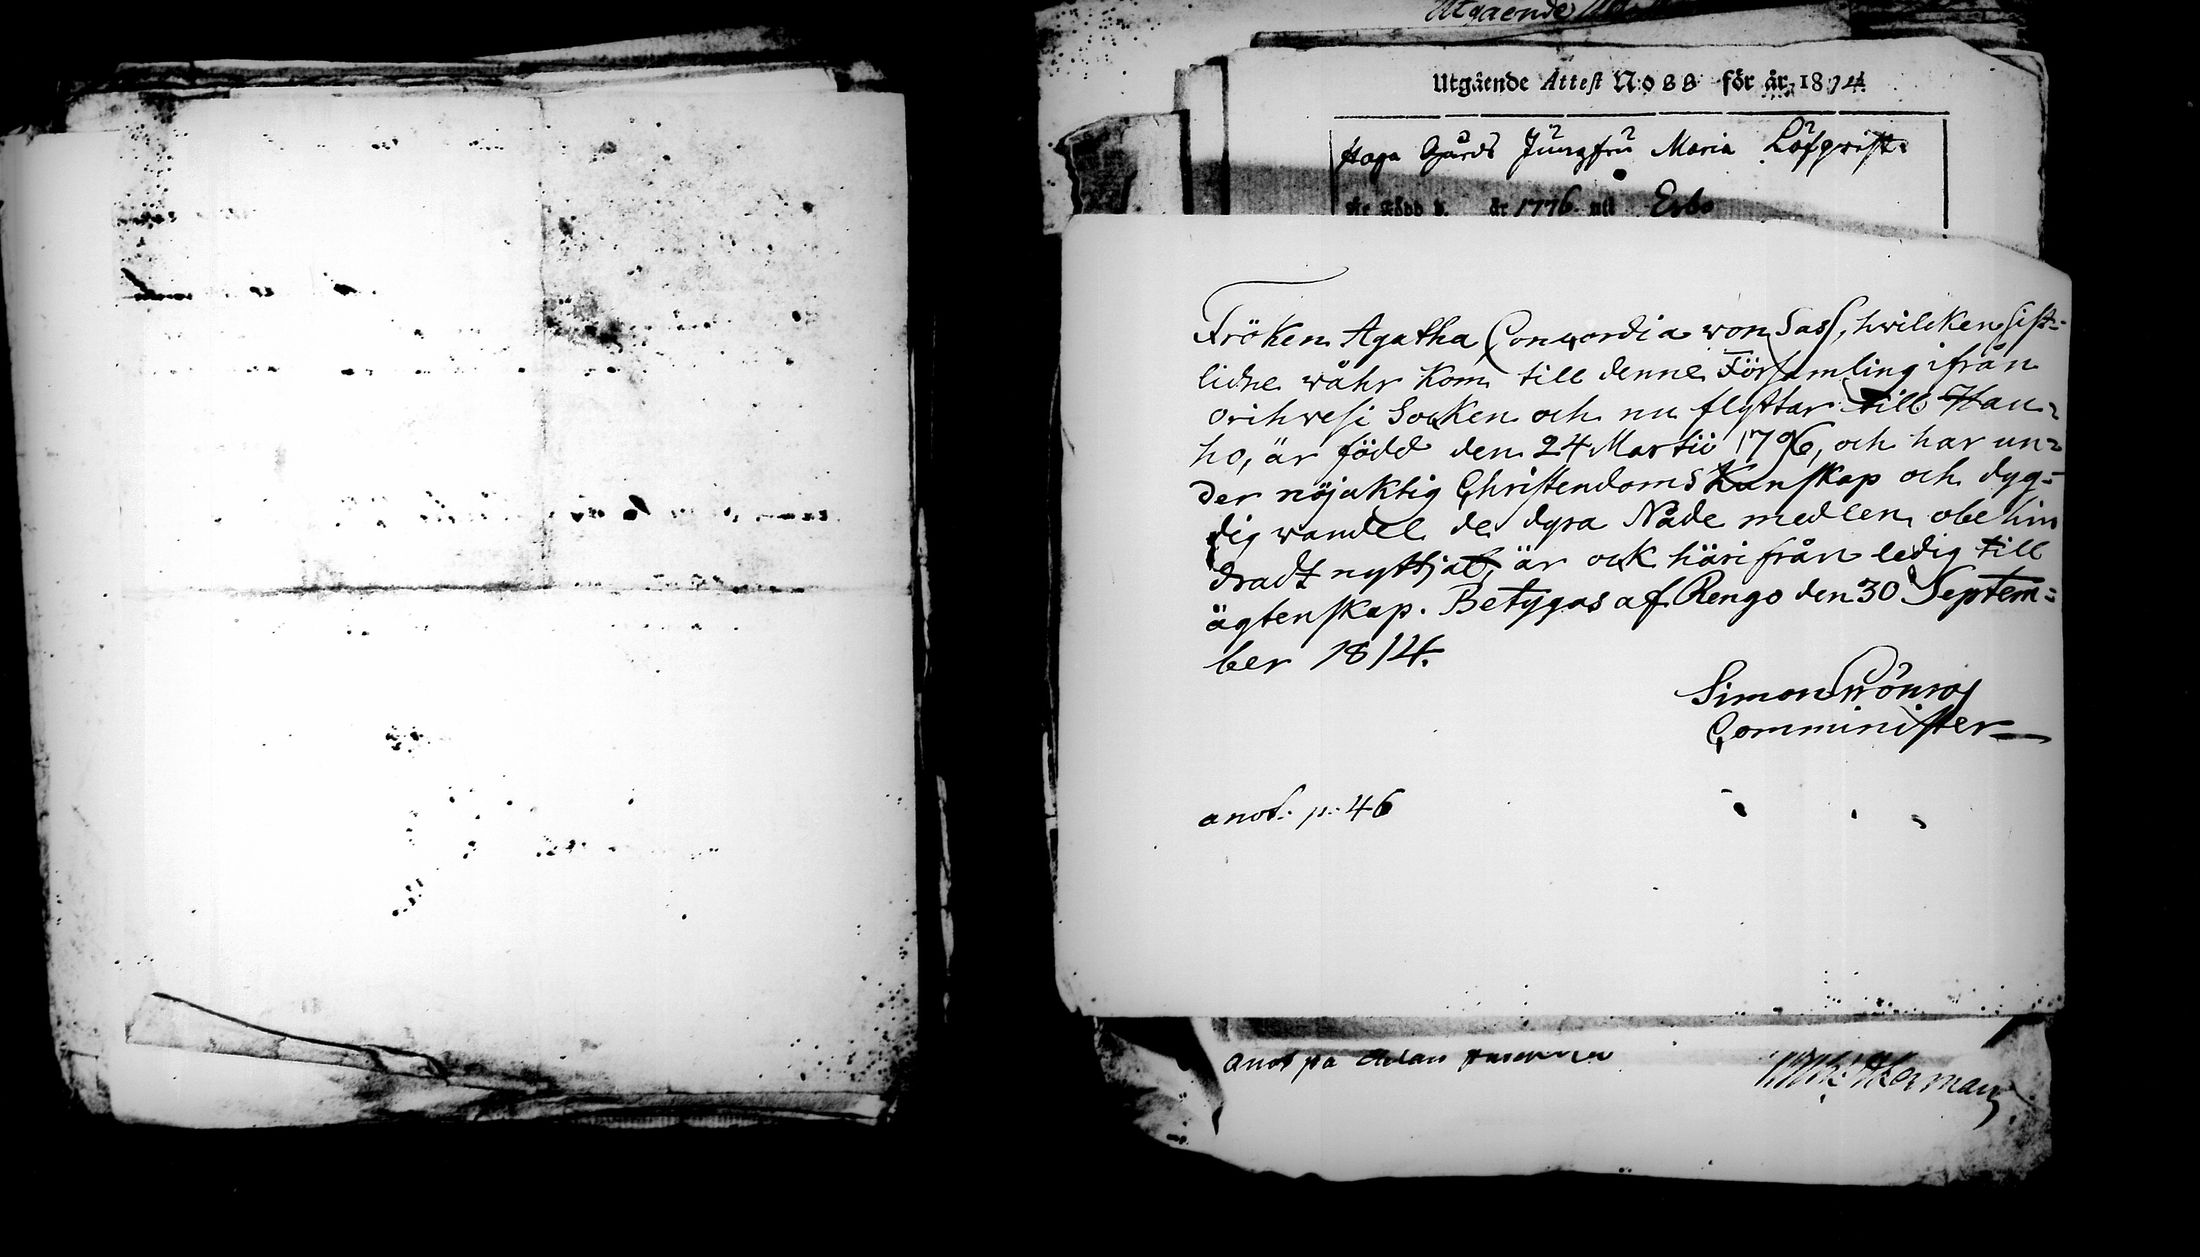 Utgående
Utgående Attest No 88 för år 1814
Haga Gårds Jungfru Maria Löfqvist
är född d. år 1776 uti Esbo
Fröken Agatha Concordia von Sass, hvilcken sist-
lidne wåhr kom till denne Församling ifrån
Orihvesi Socken och nu flyttar till Hau-
ho, är född den 24 Martii 1796, och har un-
der nöjaktig Christendoms Kunskap och dyg-
dig wandel de dyra Nådemedlen obehin
dradt nyttjat, är ock härifrån ledig till
ägtenskap. Betygas af Rengo den 30 Septem-
ber 1814.
Simon Grönroos
Comminister
anot. p. 46
anot på